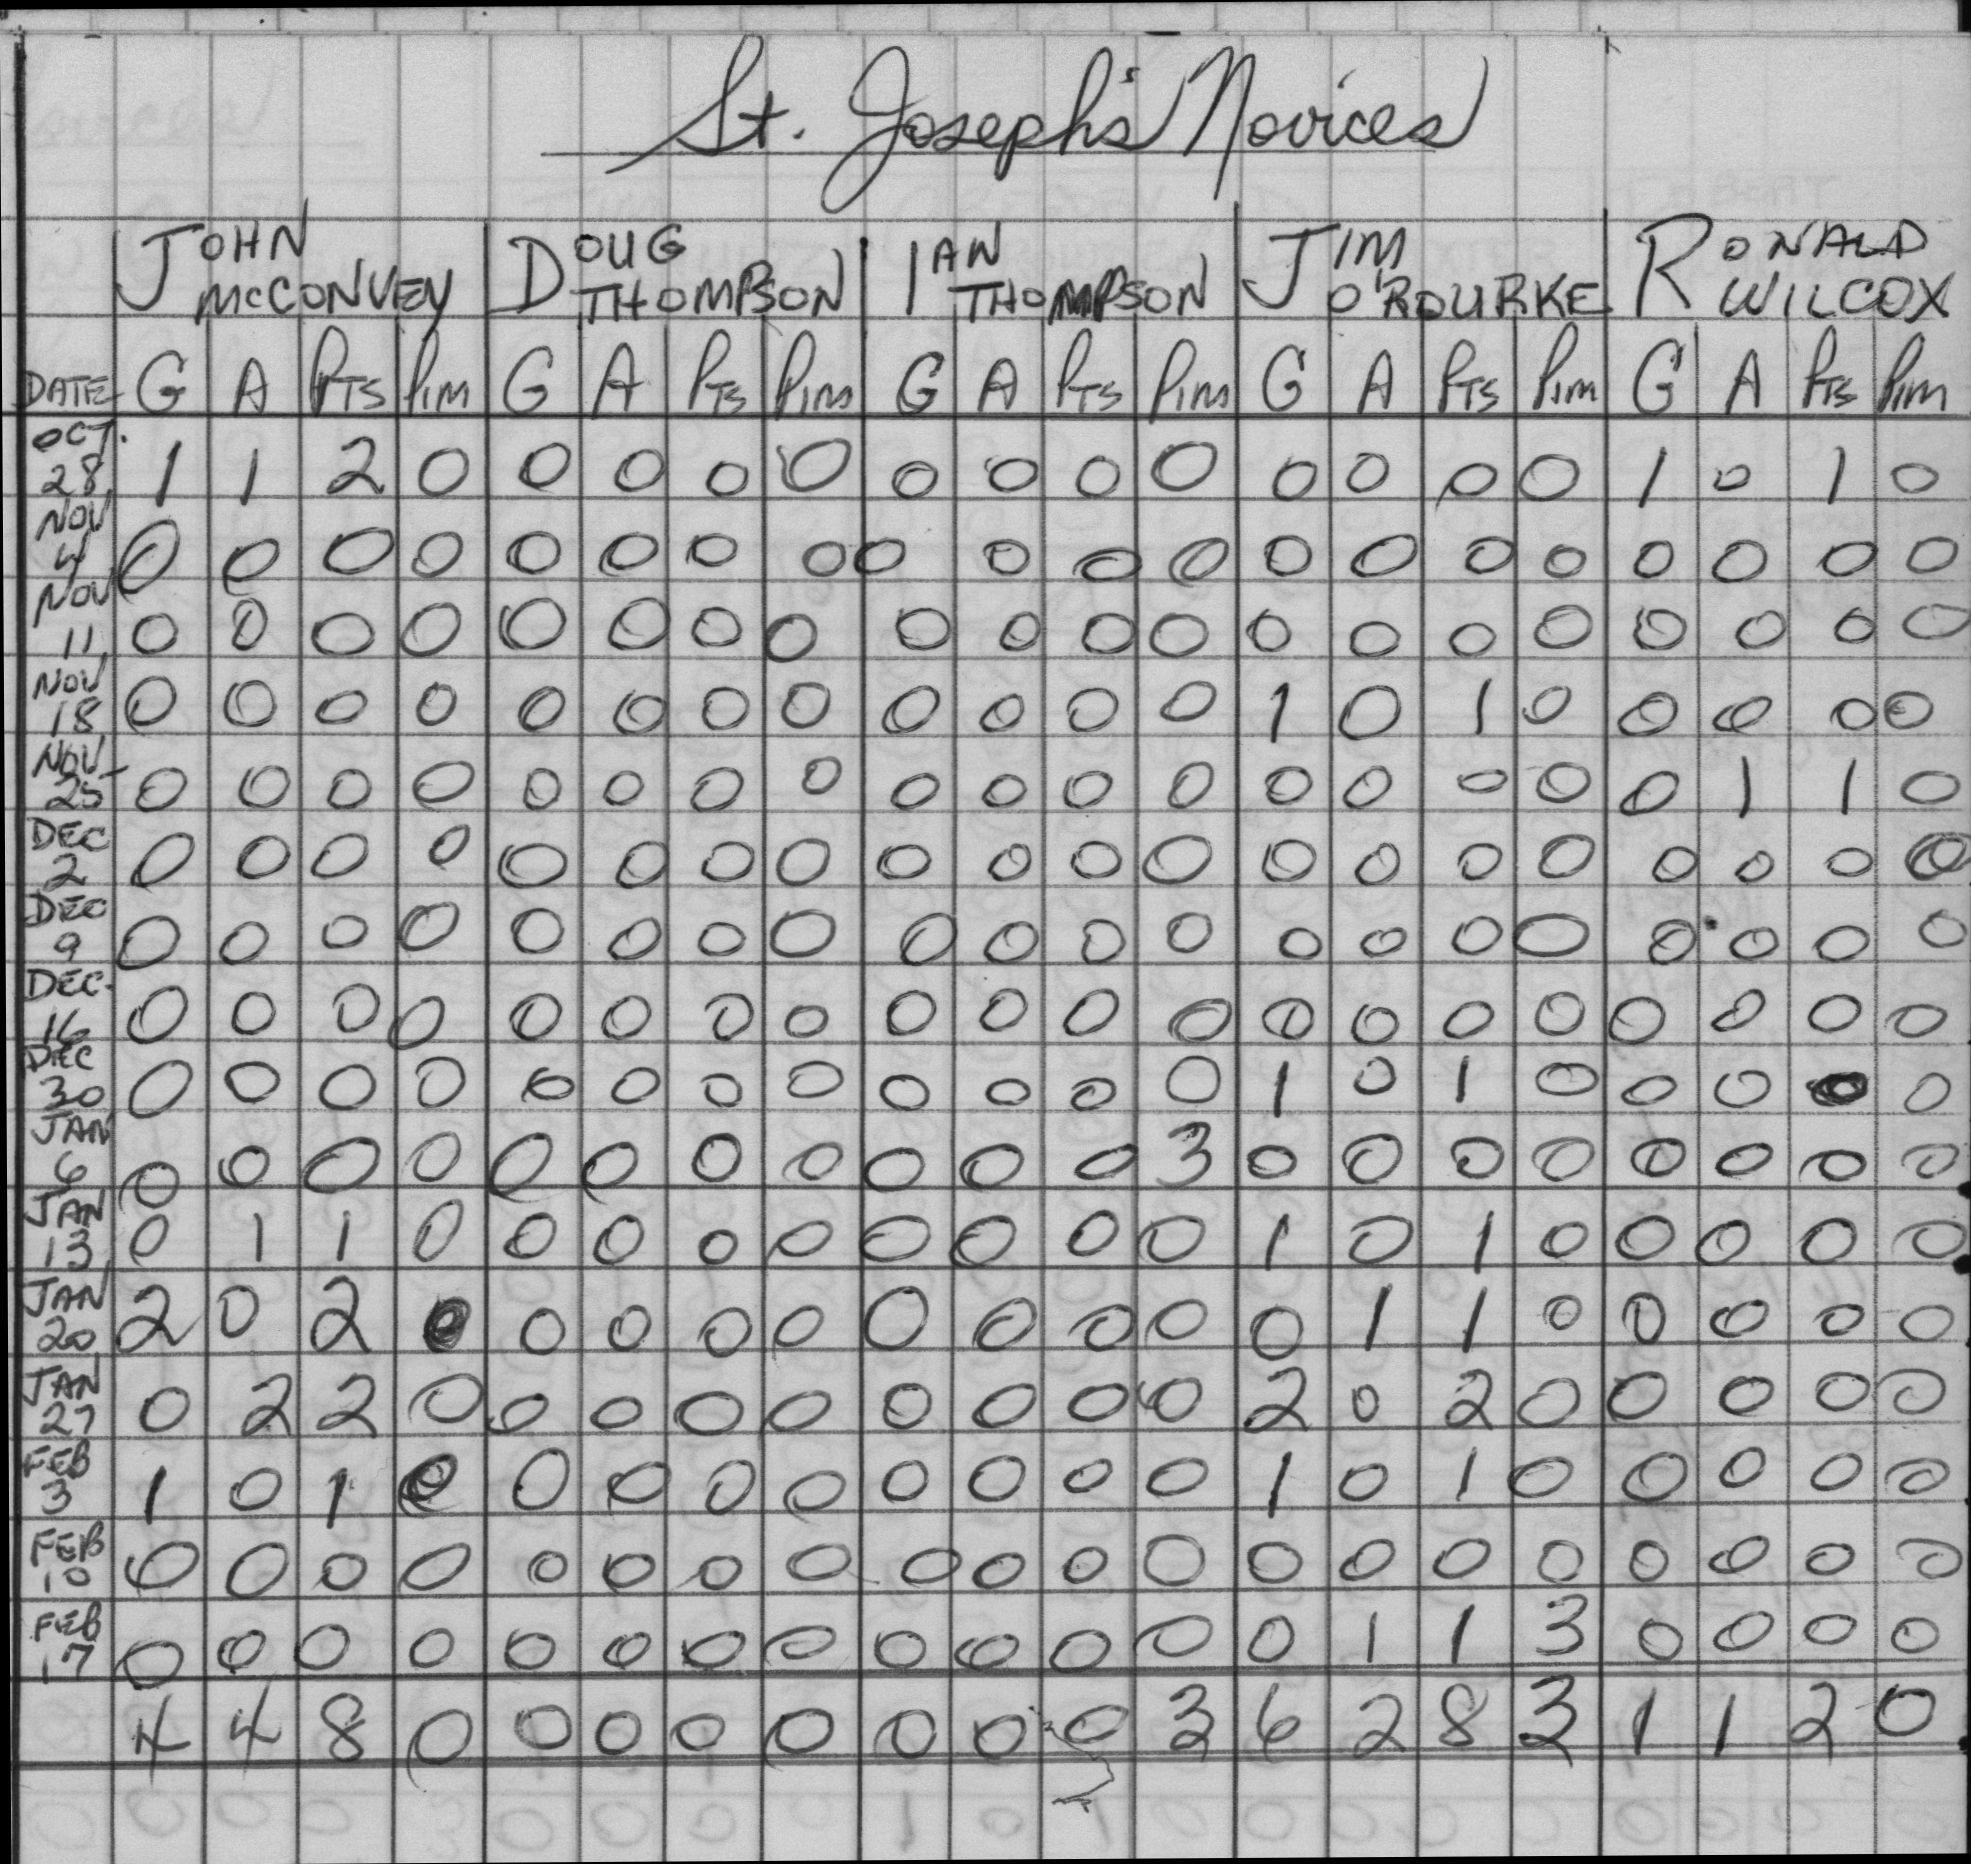 St. Joseph's Novices
JOHN McCONVEY DOUG THOMPSON IAN THOMPSON JIM O'ROURKE RONALD WILCOX
DATE G A PTS PIM G A PTS PIM G A PTS PIM G A PTS PIM G A PTS PIM
OCT. 28 1 1 2 0 0 0 0 0 0 0 0 0 0 0 0 0 1 0 1 0
NOV 4 0 0 0 0 0 0 0 0 0 0 0 0 0 0 0 0 0 0 0 0
NOV 11 0 0 0 0 0 0 0 0 0 0 0 0 0 0 0 0 0 0 0 0
NOV 18 0 0 0 0 0 0 0 0 0 0 0 0 1 0 1 0 0 0 0 0
NOV 25 0 0 0 0 0 0 0 0 0 0 0 0 0 0 0 0 0 1 1 0
DEC 2 0 0 0 0 0 0 0 0 0 0 0 0 0 0 0 0 0 0 0 0
DEC 9 0 0 0 0 0 0 0 0 0 0 0 0 0 0 0 0 0 0 0 0
DEC. 16 0 0 0 0 0 0 0 0 0 0 0 0 0 0 0 0 0 0 0 0
DEC 30 0 0 0 0 0 0 0 0 0 0 0 0 1 0 1 0 0 0 0 0
JAN 6 0 0 0 0 0 0 0 0 0 0 0 3 0 0 0 0 0 0 0 0
JAN 13 0 1 1 0 0 0 0 0 0 0 0 0 1 0 1 0 0 0 0 0
JAN 20 2 0 2 0 0 0 0 0 0 0 0 0 0 1 1 0 0 0 0 0
JAN 27 0 2 2 0 0 0 0 0 0 0 0 0 2 0 2 0 0 0 0 0
FEB 3 1 0 1 0 0 0 0 0 0 0 0 0 1 0 1 0 0 0 0 0
FEB 10 0 0 0 0 0 0 0 0 0 0 0 0 0 0 0 0 0 0 0 0
FEB 17 0 0 0 0 0 0 0 0 0 0 0 0 0 1 1 3 0 0 0 0
4 4 8 0 0 0 0 0 0 0 0 3 6 2 8 3 1 1 2 0